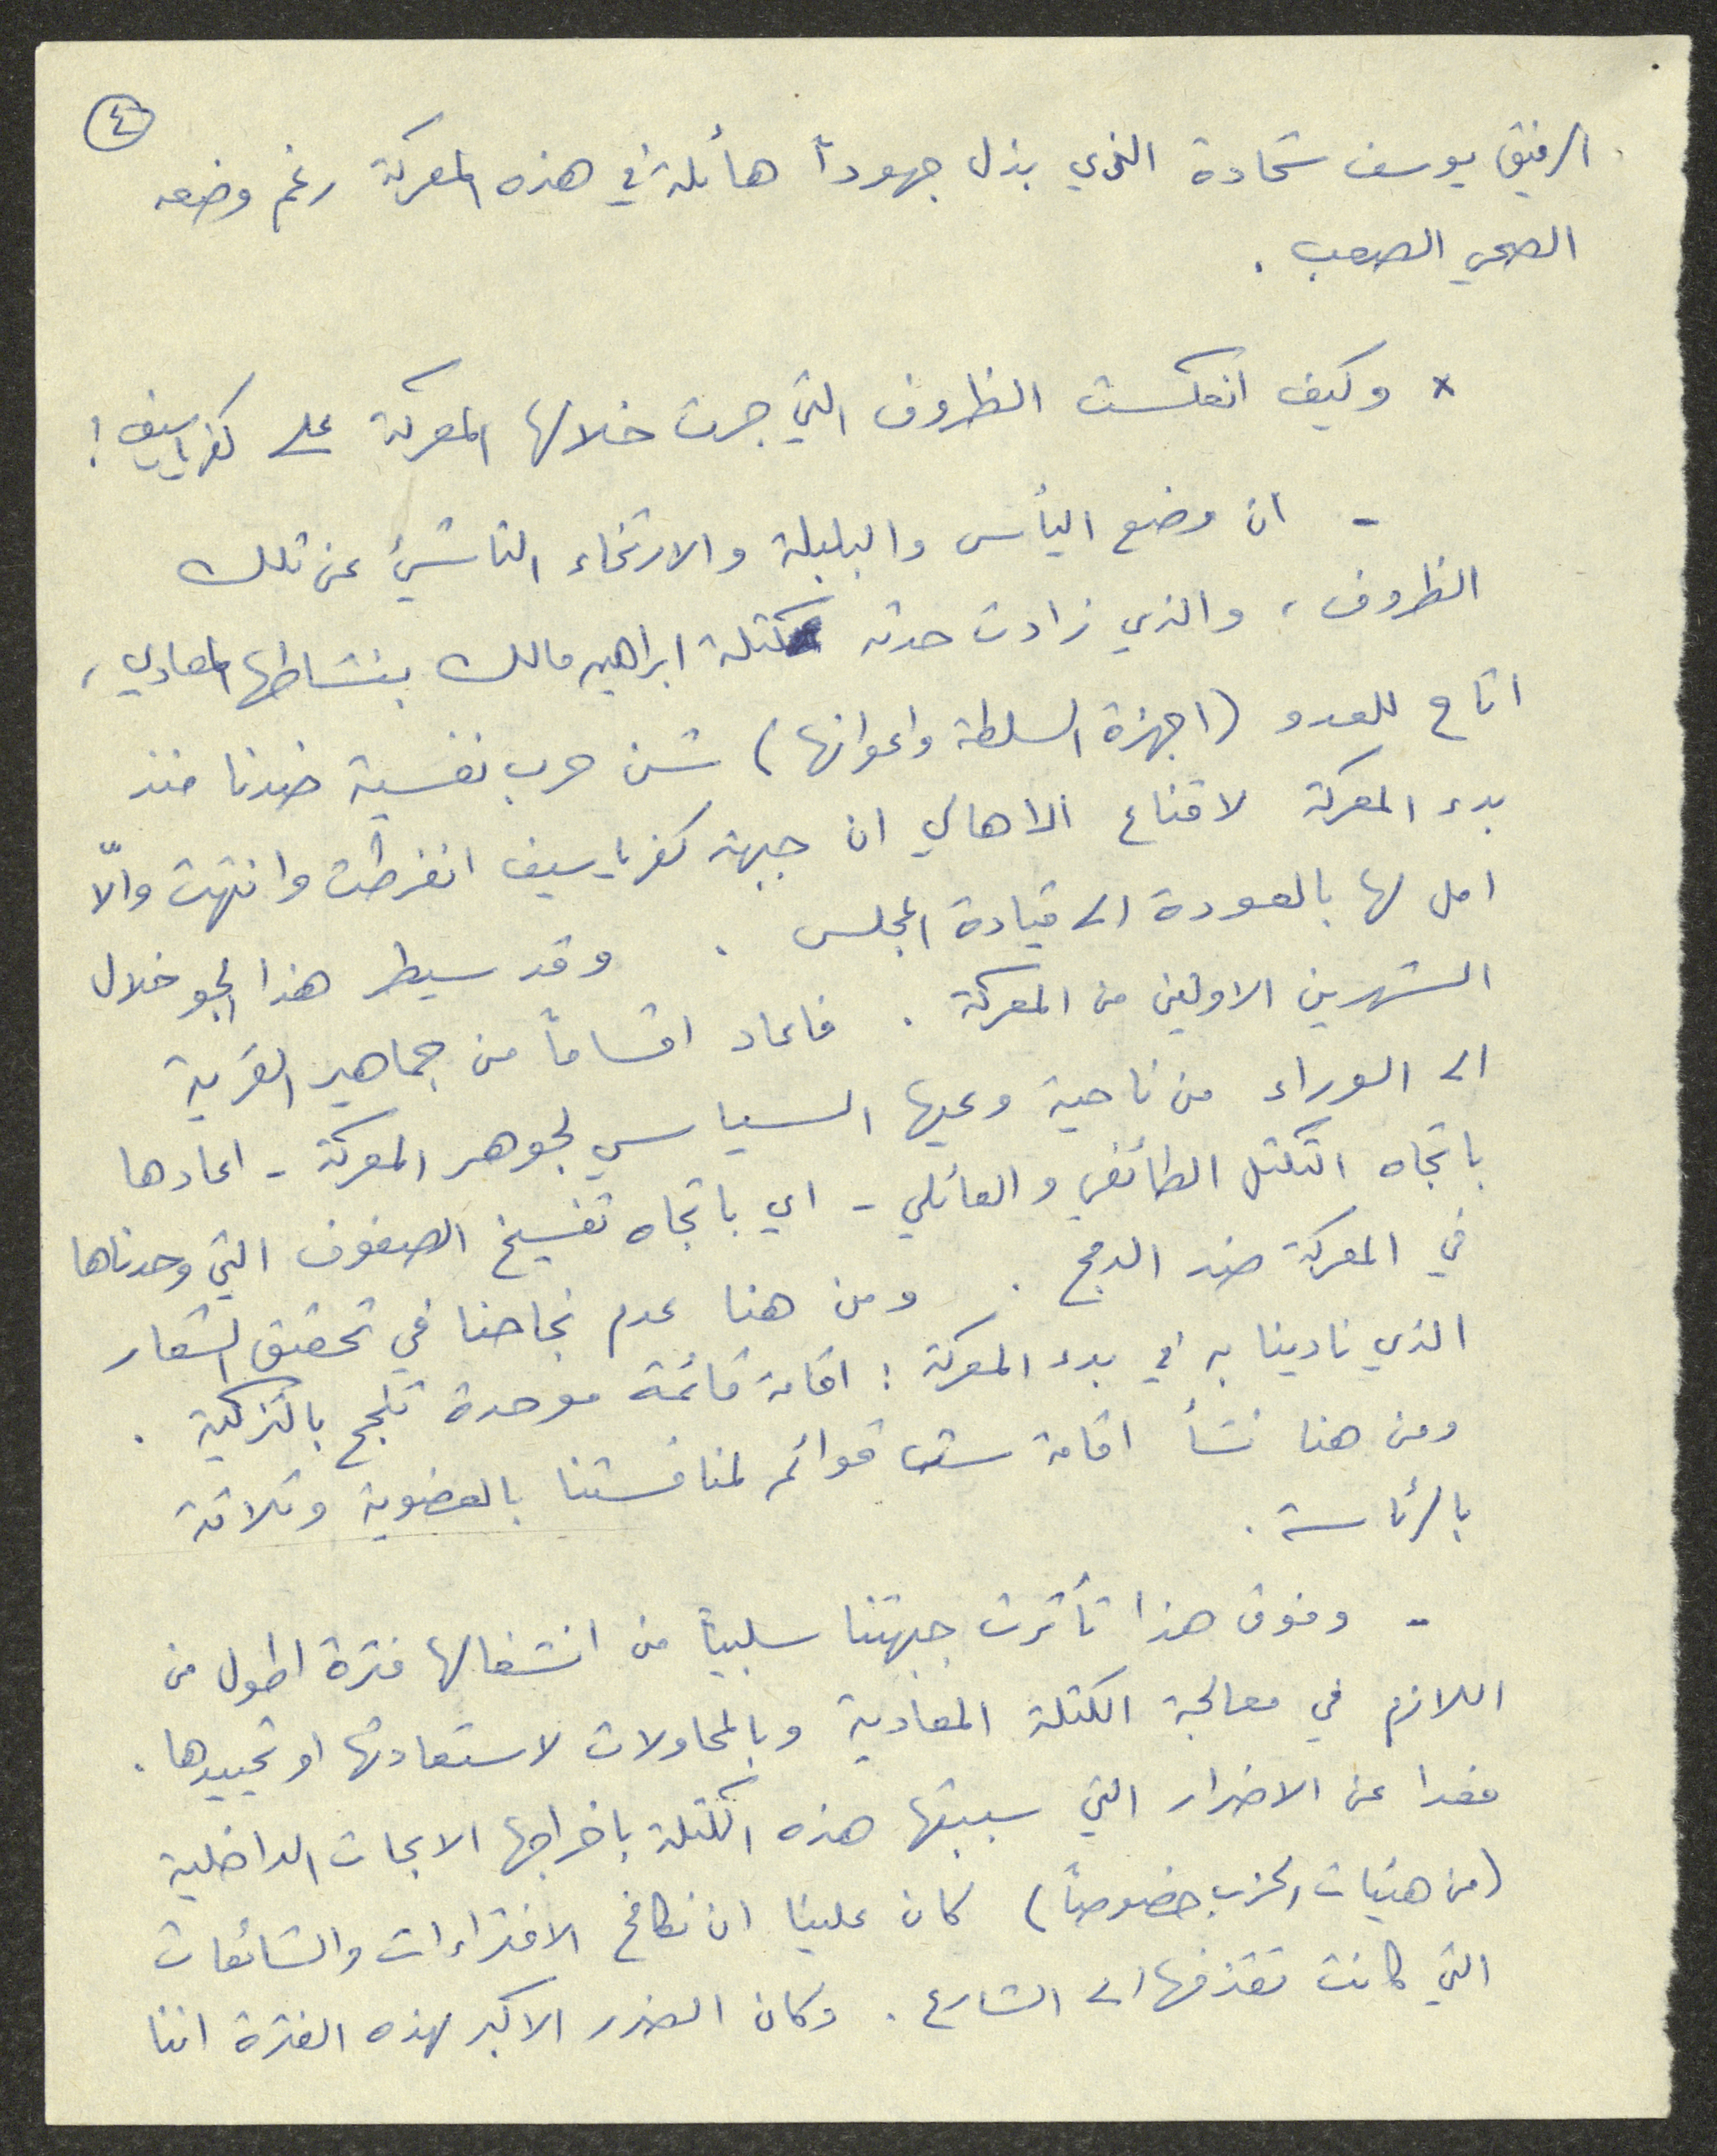 ٤
الرفيق يوسف شحادة الذي بذل جهوداً هائلة في هذه المعركة رغم وضعه
الصحي الصعب .
* وكيف انعكست الظروف التي جرت خلالها المعركة على كفرياسيف !
- ان وضع اليأس والبلبلة والارتخاء الناشئ عن تلك
الظروف ، والذي زادت حدته كتلة ابراهيم مالك بنشاطها المعادي ،
اتاح للعدو (اجهزة السلطة واعوانها) شن حرب نفسية ضدنا منذ
بدء المعركة لاقناع الاهالي ان جبهة كفرياسيف انفرطت وانتهت والّا
امل لها بالعودة الى قيادة المجلس . وقد سيطر هذا الجو خلال
الشهرين الاولين من المعركة . فاعاد اقساماً من جماهير القرية
الى الوراء من ناحية وعيها السياسي لجوهر المعركة - اعادها
باتجاه التكتل الطائفي والعائلي - اي باتجاه تفسيخ الصفوف التي وحدناها
في المعركة ضد الدمج . ومن هنا عدم نجاحنا في تحقيق الشعار
الذي نادينا به في بدء المعركة : اقامة قائمة موحدة تنجح بالتزكية .
ومن هنا نشأ اقامة ست قوائم لمنافستنا بالعضوية وثلاثة
بالرئاسة .
- وفوق هذا تأثرت جبهتنا سلبياً من انشغالها فترة اطول من
اللازم في معالجة الكتلة المعادية وبالمحاولات لاستعادتها او تحييدها .
فعدا عن الاضرار التي سببتها هذه الكتلة باخراجها الابحاث الداخلية
(من هيئات الحزب خصوصاً) كان علينا ان نكافح الافتراءات والشائعات
التي كانت تقذفها الى الشارع . وكان الضرر الاكبر لهذه الفترة اننا